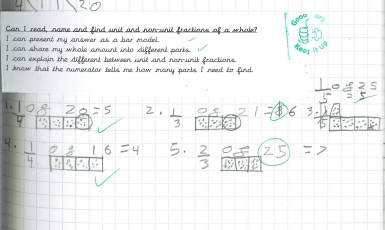 Can I read, name and find unit and non-unit fractions of a whole?
I can present my answer as a bar model.
I can share my whole amount into different parts.
I can explain the different between unit and non-unit fractions.
I know that the numerator tells me how many parts I need to find.
Good
Keep it up
1/5 of 25
1. 1/4 of 20 = 5
2. 1/3 of 21 = 6
3. 1/5
4. 1/4 of 16 = 4
5. 2/3 of 25 =